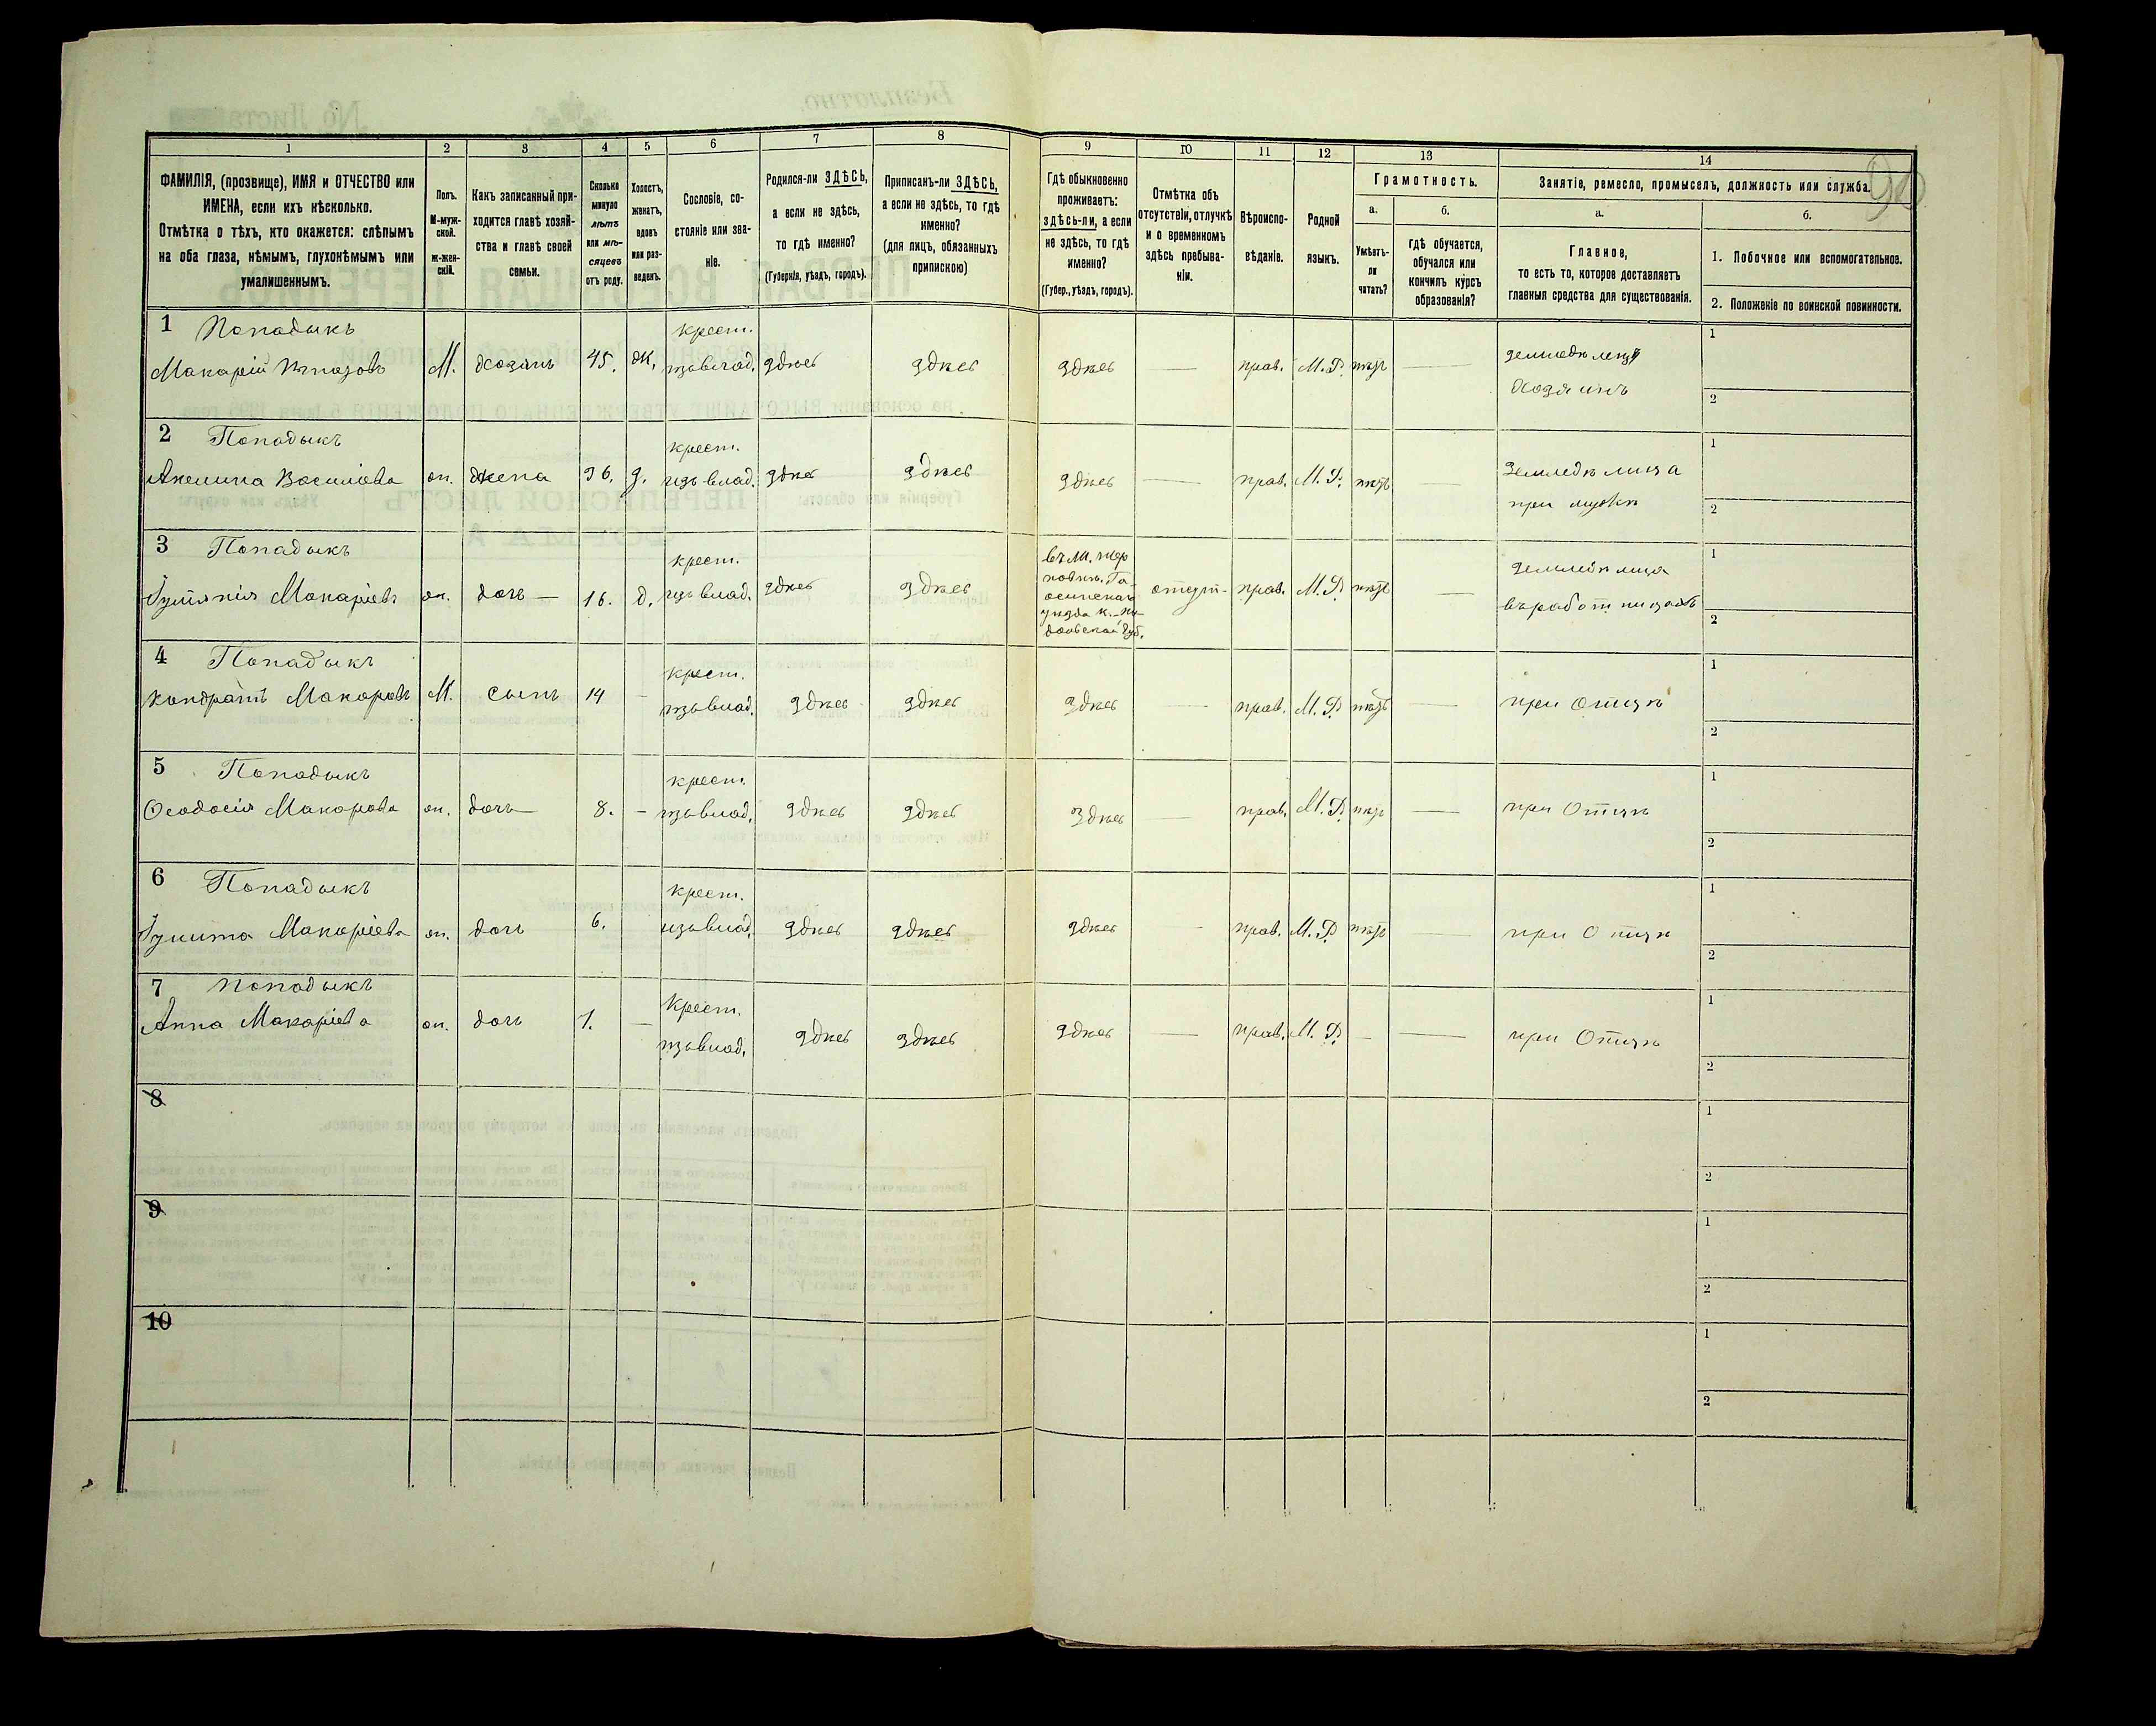 1 2 3 4 5 6 7 8 9 10 11 12 13 14
ФАМИЛІЯ, (прозвище), ИМЯ и ОТЧЕСТВО или
ИМЕНА, если ихъ нѣсколько.
Отмѣтка о тѣхъ, кто окажется: слѣпымъ
на оба глаза, нѣмымъ, глухонѣмымъ или
умалишеннымъ.
Полъ.
М-муж-
ской.
ж-жен-
скій.
Какъ записанный при-
ходится главѣ хозяй-
ства и главѣ своей
семьи.
Сколько
минуло
лѣтъ
или мѣ-
сяцевъ
отъ роду.
Холостъ,
женатъ,
вдовъ
или раз-
веденъ.
Сословіе, со-
стояніе или зва-
ніе.
Родился-ли ЗДѢСЬ,
а если не здѣсь,
то гдѣ именно?
(Губернія, уѣздъ, городъ).
Приписанъ-ли ЗДѢСЬ,
а если не здѣсь, то гдѣ
именно?
(для лицъ, обязанныхъ
припискою)
Гдѣ обыкновенно
проживаетъ:
здѣсь-ли, а если
не здѣсь, то гдѣ
именно?
(Губер., уѣздъ, городъ).
Отмѣтка объ
отсутствіи, отлучкѣ
и о временномъ
здѣсь пребыва-
ніи.
Вѣроиспо-
вѣданіе.
Родной
языкъ.
Грамотность.
а.
Умѣетъ-
ли
читать?
б.
гдѣ обучается,
обучался или
кончилъ курсъ
образованія?
Занятіе, ремесло, промыселъ, должность или служба.
а.
Главное,
то есть то, которое доставляетъ
главныя средства для существованія.
б.
1. Побочное или вспомогательное.
2. Положеніе по воинской повинности.
1 Попадыкъ
Макарій М. Хозяинъ 45. ж. крест. изъ влад. здѣсь здѣсь здѣсь — прав. М.Р. нѣтъ —
Хозяинъ
1
2
2 Попадыкъ
Акелина Василіева ж. жена 36. з. крест. изъ влад. здѣсь здѣсь здѣсь — прав. М.Р. нѣтъ —
при мужѣ
1
2
3 Попадыкъ
Макаріева ж. дочь — 16. д. крест. изъ влад. здѣсь здѣсь
прав. М.Р. нѣтъ —
1
2
4 Попадыкъ
Кондратъ Макаровъ М. сынъ 14 - крест. изъ влад. здѣсь здѣсь здѣсь — прав. М.Р. нѣтъ — при Отцѣ
1
2
5 Попадыкъ
Ѳеодосія Макарова ж. дочь — 8. - крест. изъ влад. здѣсь здѣсь здѣсь — прав. М.Р. нѣтъ — при Отцѣ
1
2
6 Попадыкъ
Макаріева ж. дочь 6. крест. изъ влад. здѣсь здѣсь здѣсь - прав. М.Р. нѣтъ — при Отцѣ
1
2
7 Попадыкъ
Анна Макаріева ж. дочь 1. — Крест. изъ влад. здѣсь здѣсь здѣсь — прав. М.Р. - — при Отцѣ
1
2
8
1
2
9
1
2
10
1
2